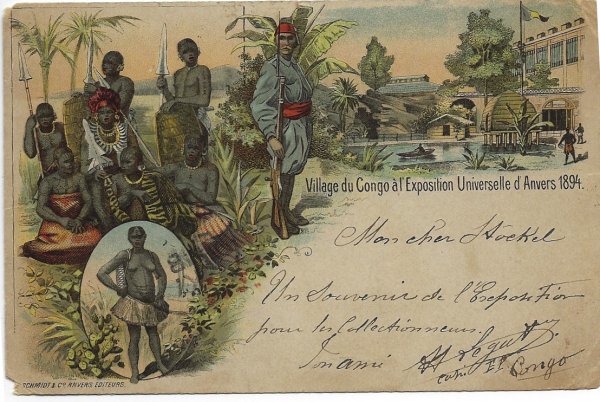 Village du Congo à l'Exposition Universelle d'Anvers 1894.
Mon cher Stockel
Un souvenir de l'Exposition
pour les Collectionneurs.
Ton ami
Congo
SCHMIDT & Co. ANVERS EDITEURS.